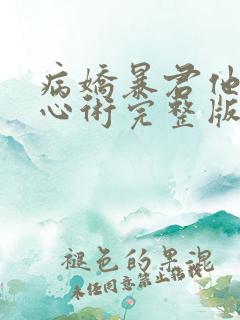 病嬌暴君他
心術完整版
褪色的墨混
未经同意禁止转载